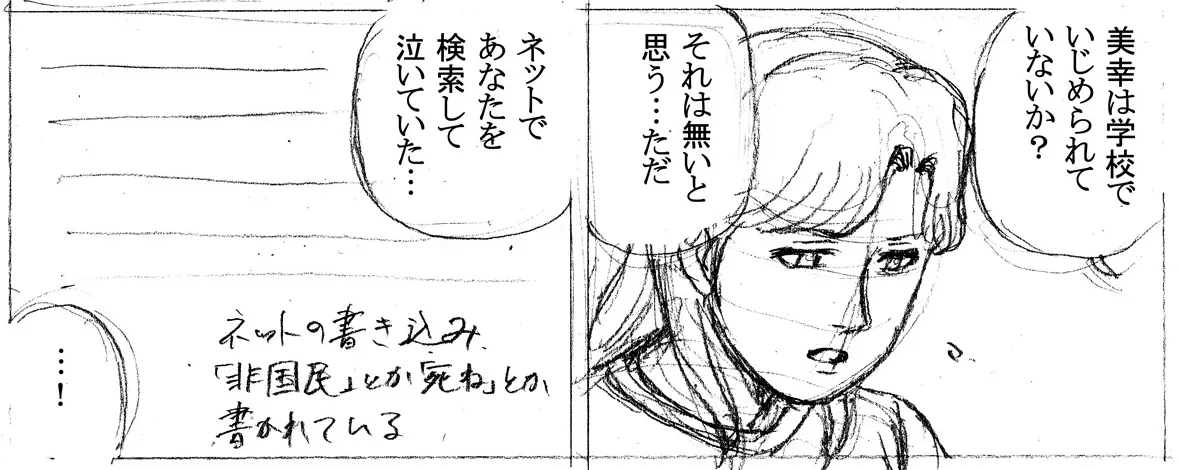 美幸は学校で
いじめられて
いないか?
それは無いと
思う…ただ
ネットで
あなたを
検索して
泣いていた…
ネットの書き込み
「非国民」とか「死ね」とか
書かれている
…!